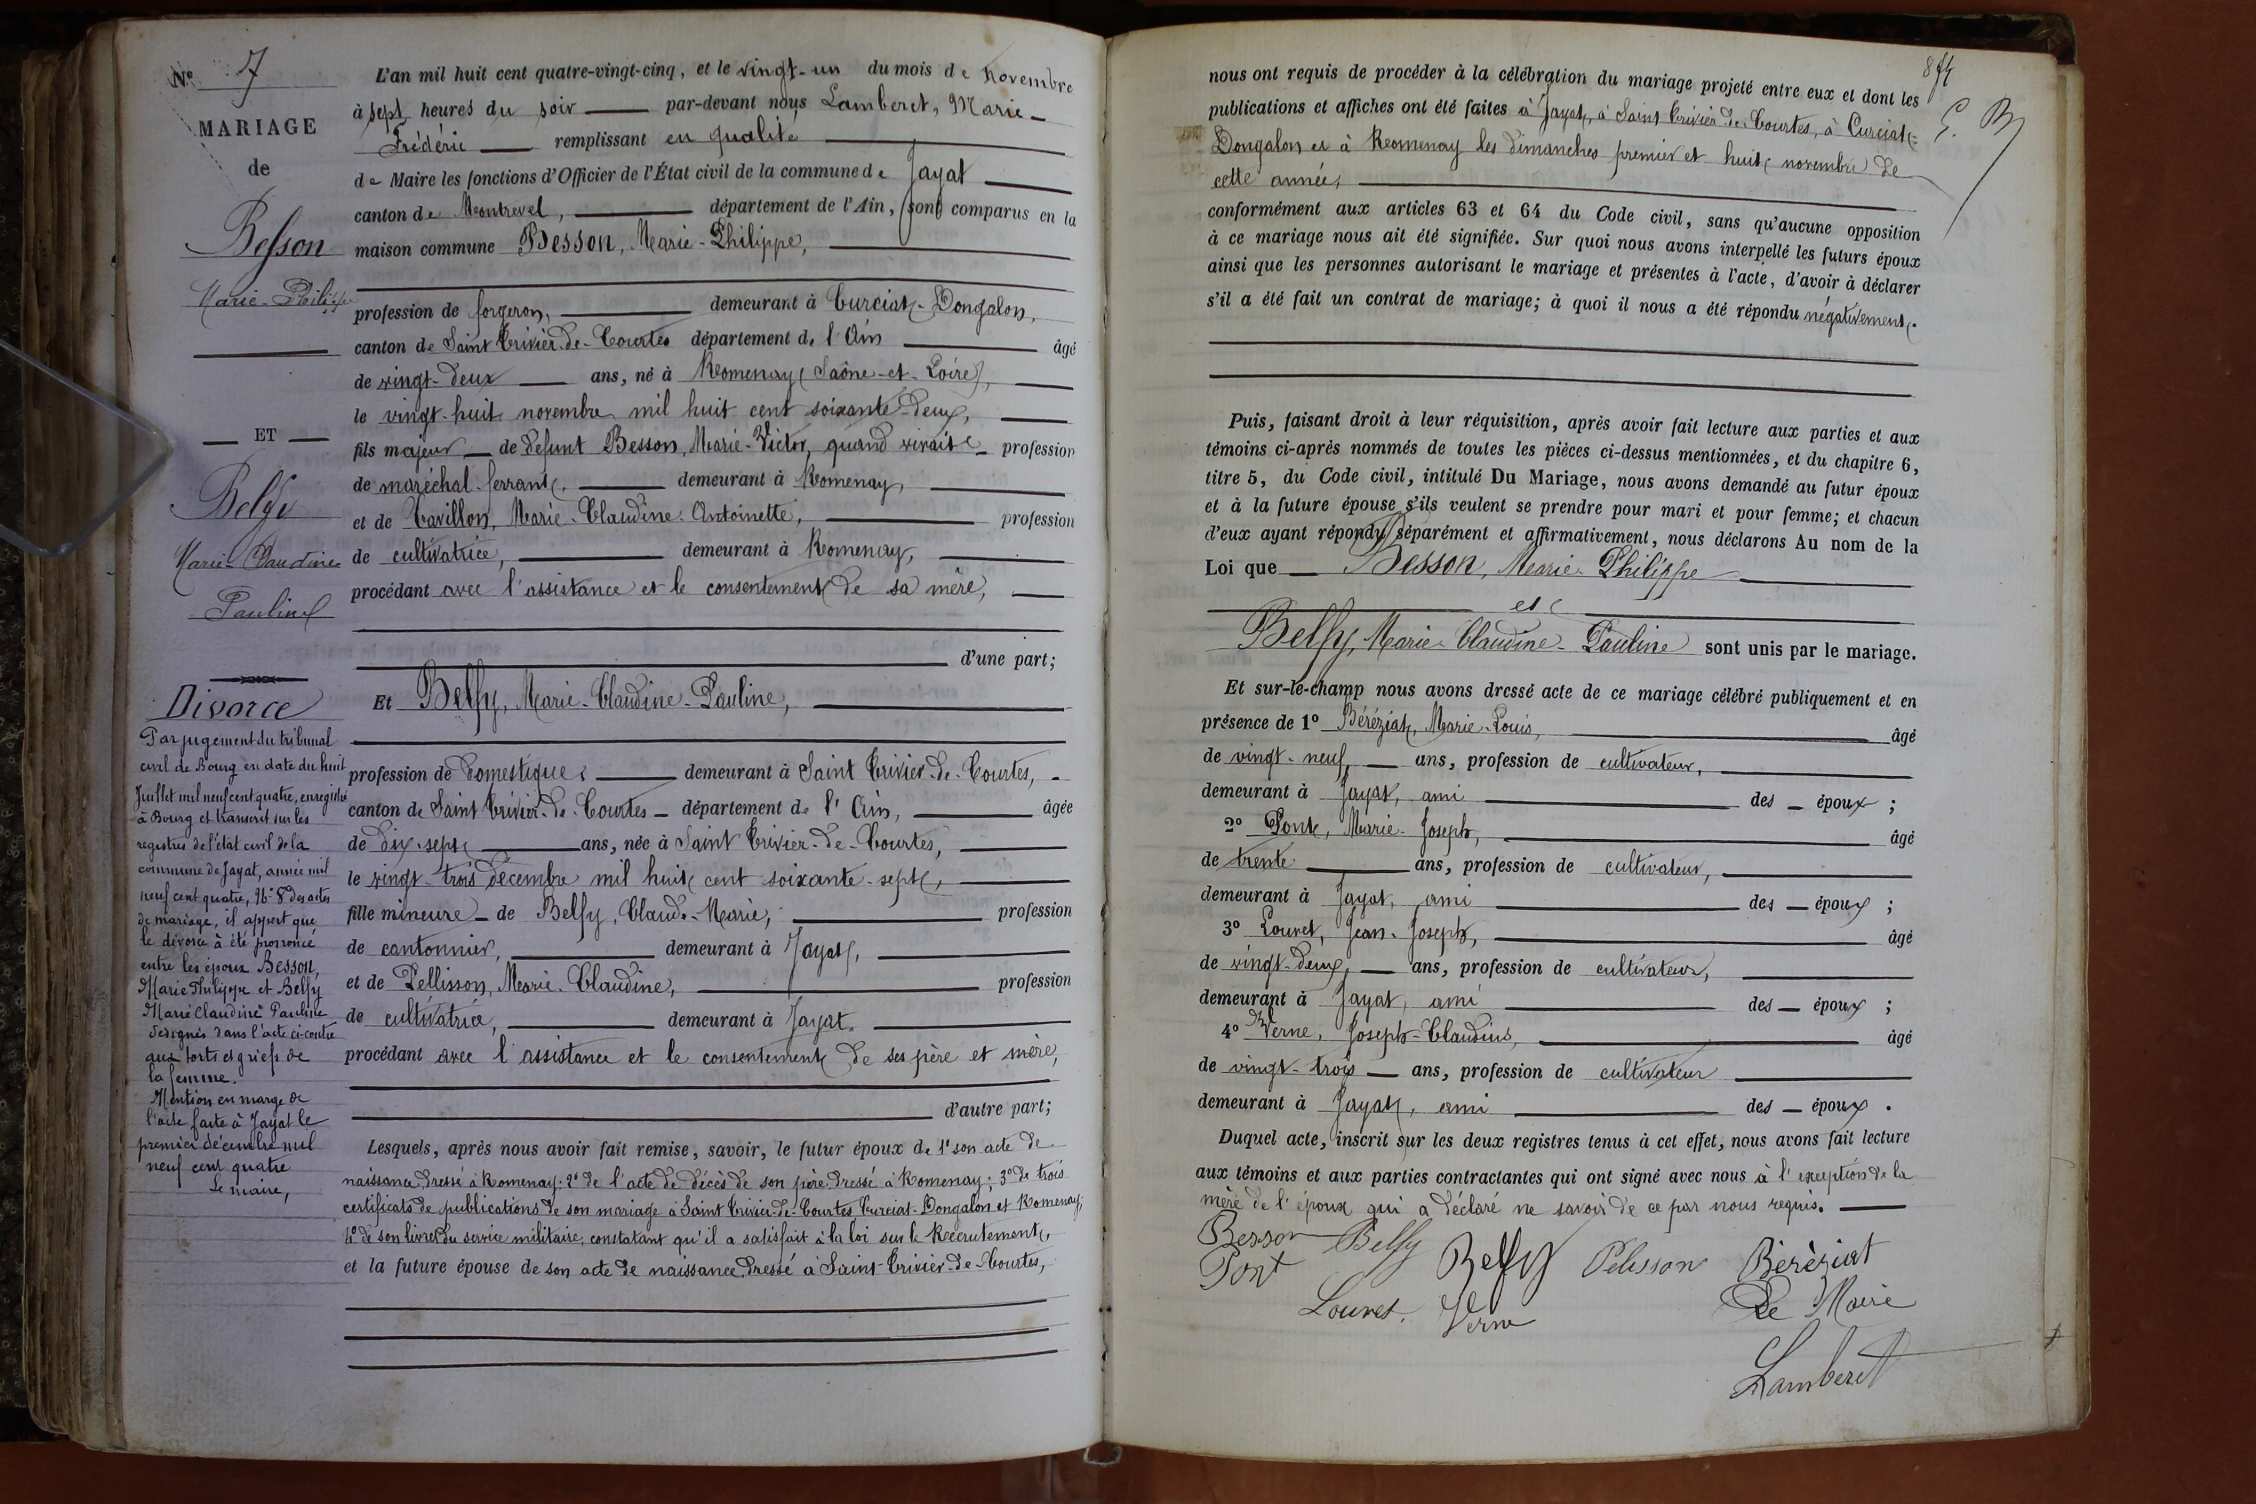 N° 7
MARIAGE
de
Besson
Marie-Philippe
ET
Belfy
Marie-Claudine
Pauline
Divorce
Par jugement du tribunal
civil de Bourg en date du huit
Juillet mil neuf cent quatre, enregistré
à Bourg et transcrit sur les
registres de l'état civil de la
commune de Jayat, année mil
neuf cent quatre, N° 8 des actes
de mariage, il appert que
le divorce à été prononcé
entre les époux Besson,
Marie Philippe et Belfy
Marie Claudine Pauline
désignés dans l'acte ci-contre
aux torts et griefs de
la femme.
Mention en marge de
l'acte faite à Jayat le
premier décembre mil
neuf cent quatre
Le maire,
L'an mil huit cent quatre-vingt-cinq, et le vingt-un du mois de novembre
à sept heures du soir par-devant nous Lamberet, Marie-
Frédéric remplissant en qualité
de Maire les fonctions d'Officier de l'État civil de la commune de Jayat
canton de Montrevel, département de l'Ain, sont comparus en la
maison commune Besson, Marie-Philippe,
profession de forgeron, demeurant à Curciat-Dongalon,
canton de Saint Trivier-de-Courtes département de l'Ain âgé
de vingt-deux ans, né à Romenay (Saône-et-Loire),
le vingt-huit novembre mil huit cent soixante-deux,
fils majeur de défunt Besson, Marie-Victor, quand vivait profession
de maréchal-ferrant, demeurant à Romenay,
et de Tavillon, Marie-Claudine-Antoinette, profession
de cultivatrice, demeurant à Romenay,
procédant avec l'assistance et le consentement de sa mère,
d'une part;
Et Belfy, Marie-Claudine-Pauline,
profession de domestique, demeurant à Saint Trivier-de-Courtes,
canton de Saint Trivier-de-Courtes département de l'Ain, âgée
de dix-sept ans, née à Saint Trivier-de-Courtes,
le vingt-trois décembre mil huit cent soixante-sept,
fille mineure de Belfy, Claude-Marie, profession
de cantonnier, demeurant à Jayat,
et de Pellisson, Marie-Claudine, profession
de cultivatrice, demeurant à Jayat.
procédant avec l'assistance et le consentement de ses père et mère,
d'autre part;
Lesquels, après nous avoir fait remise, savoir, le futur époux de 1° son acte de
naissance dressé à Romenay; 2° de l'acte de décès de son père dressé à Romenay; 3° de trois
certificats de publications de son mariage à Saint Trivier-de-Courtes Curciat-Dongalon et Romenay;
4° de son livret du service militaire, constatant qu'il a satisfait à la loi sur le Recrutement,
et la future épouse de son acte de naissance dressé à Saint-Trivier-de-Courtes,
nous ont requis de procéder à la célébration du mariage projeté entre eux et dont les
publications et affiches ont été faites à Jayat, à Saint Trivier-de-Courtes, à Curciat-
Dongalon et à Romenay les dimanches premier et huit novembre de
cette année,
conformément aux articles 63 et 64 du Code civil, sans qu'aucune opposition
à ce mariage nous ait été signifiée. Sur quoi nous avons interpellé les futurs époux
ainsi que les personnes autorisant le mariage et présentes à l'acte, d'avoir à déclarer
s'il a été fait un contrat de mariage; à quoi il nous a été répondu négativement.
Puis, faisant droit à leur réquisition, après avoir fait lecture aux parties et aux
témoins ci-après nommés de toutes les pièces ci-dessus mentionnées, et du chapitre 6,
titre 5, du Code civil, intitulé Du Mariage, nous avons demandé au futur époux
et à la future épouse s'ils veulent se prendre pour mari et pour femme; et chacun
d'eux ayant répondu séparément et affirmativement, nous déclarons Au nom de la
Loi que Besson, Marie-Philippe
et
Belfy, Marie-Claudine-Pauline sont unis par le mariage.
Et sur-le-champ nous avons dressé acte de ce mariage célébré publiquement et en
présence de 1° Béréziat, Marie-Louis, âgé
de vingt-neuf, ans, profession de cultivateur,
demeurant à Jayat, ami des époux;
2° Pont, Marie-Joseph, âgé
de trente ans, profession de cultivateur,
demeurant à Jayat, ami des époux;
3° Louvet, Jean-Joseph, âgé
de vingt-deux, ans, profession de cultivateur,
demeurant à Jayat, ami des époux;
4° Verne, Joseph-Claudius, âgé
de vingt-trois ans, profession de cultivateur
demeurant à Jayat, ami des époux.
Duquel acte, inscrit sur les deux registres tenus à cet effet, nous avons fait lecture
aux témoins et aux parties contractantes qui ont signé avec nous à l'exception de la
mère de l'époux qui a déclaré ne savoir de ce par nous requis.
Besson Belfy Belfy Pélisson Béréziat
Pont Louvet. Verne Le Maire
Lamberet